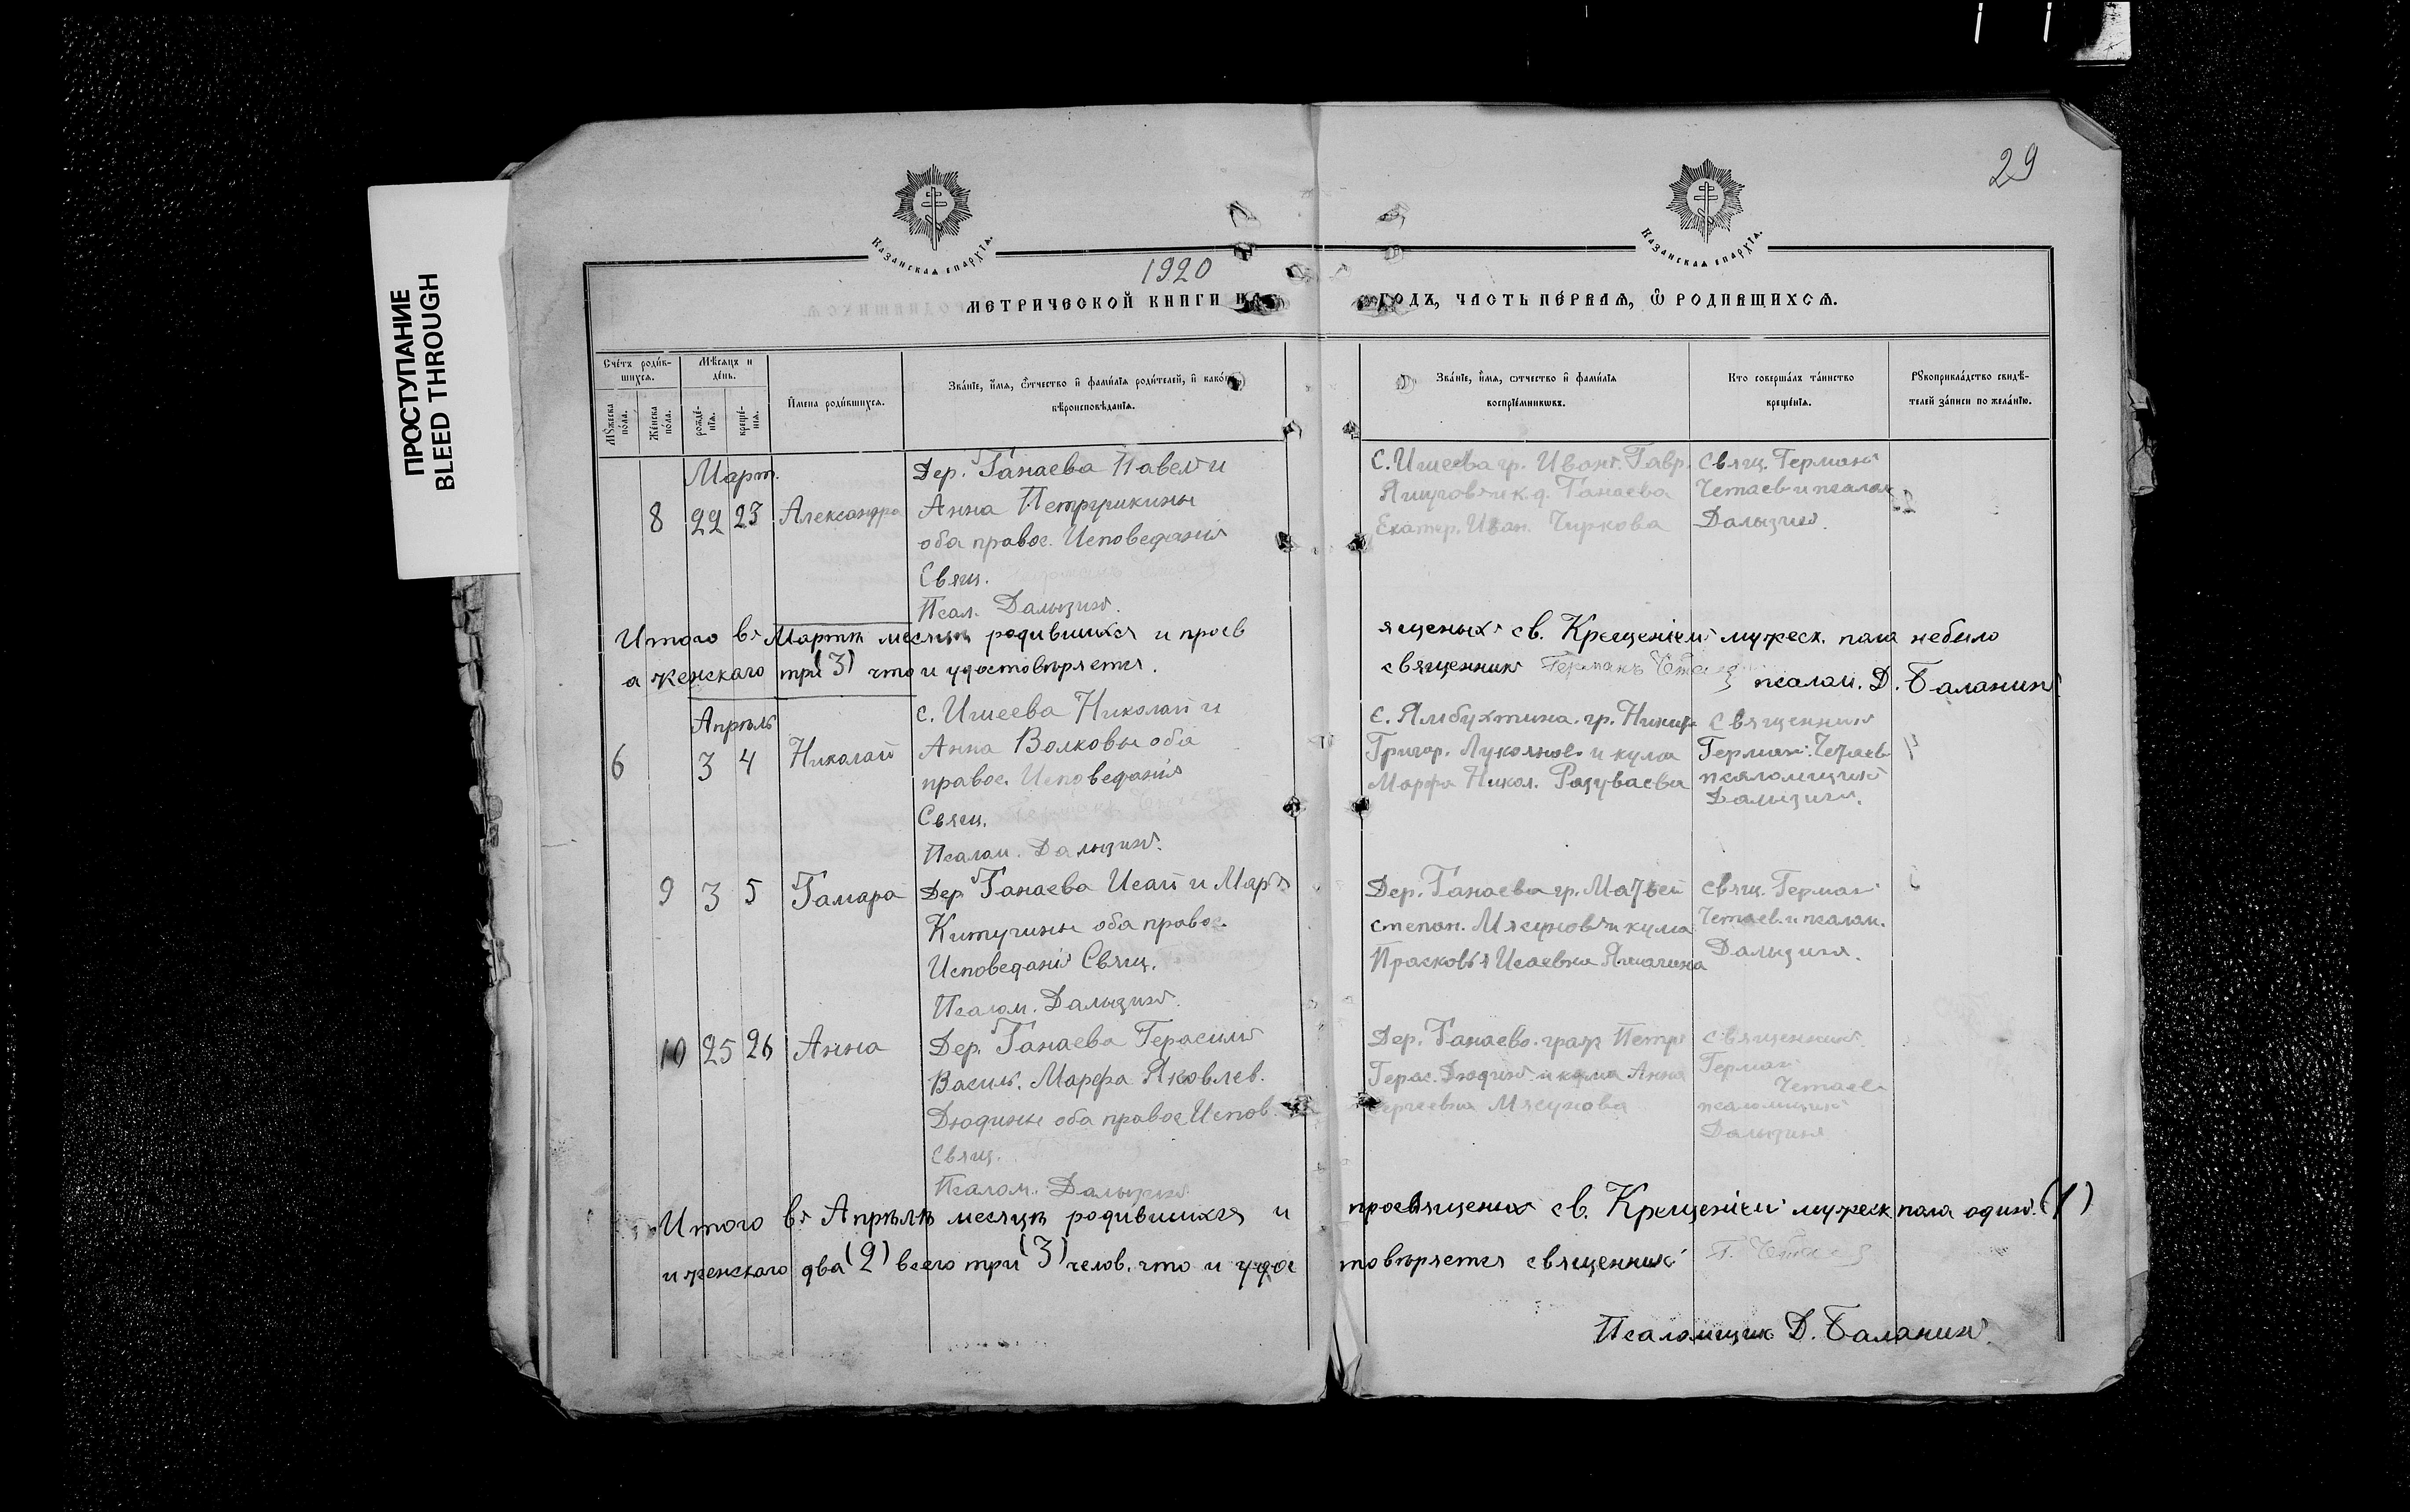 ПРОСТУПАНИЕ
BLEED THROUGH
29
Казанская епархїа.
Казанская епархїа.
1920
МЕТРИЧЕСКОЙ КНИГИ НА
ГОДЪ, ЧАСТЬ ПЕРВАЯ, Ѿ РОДИВШИХСЯ.
Счетъ родив-
шихся.
Мѣсяцъ и
день.
Мужеска
пола.
Женска
пола.
рожде-
нїя.
креще-
нїя.
Имена родившихся.
Званїе, имя, ѿчество и фамилїя родителей, и какого
вѣроисповѣданїя.
Званїе, имя, ѿчество и фамилїя
воспрїемниковъ.
Кто совершалъ таинство
крещенїя.
Рукоприкладство свидѣ-
телей записи по желанїю.
Март.
8 22 23 Александра
Дер. Танаева Павелъ и
Анна Петрушкины
оба правос. Исповеданія
Свящ.
Псал. Далызинъ.
С. Ишеева гр. Иванъ. Гавр.
Ямуровъ и к. д. Танаева
Екатер. Иван. Чиркова
Свящ. Германъ
Четаев и псалом
Далызин.
Итого въ Мартѣ месяцѣ родившихся и просв
ященыхъ св. Крещеніем мужеск. пола небыло
а женскаго три (3) что и удостовѣряется.
священник Германъ Четаев
псалом. Д. Баланин
Апрѣль
6 3 4 Николай
с. Ишеева Николай и
Анна Волковы оба
правос. Исповеданія
Свящ.
Псалом. Далызинъ.
С. Ялбухтина. гр. Никиф
Григор. Лукоянов и кума
Марфа Никол. Разуваева
Священник
Герман. Четаев
псаломщик
Далызин.
9 3 5 Тамара
Дер. Танаева Исай и Марья
Китугины оба правос.
Исповеданія Свящ.
Псалом. Далызинъ.
Дер. Танаева гр. Матвей
степан. Мясунов и кума
Прасковья Исаевна
Свящ. Герман
Четаев. и псалом.
Далызин.
10 25 26 Анна
Дер. Танаева Герасимъ
Василь. Марфа Яковлев.
Дюдины оба правос Испов.
Свящ.
Псалом. Далызин
Дер. Танаево. граж Петр
Герас. Дюдин и кума Анна
Сергеевна Мясунова
Священник
Герман
Четаев
псаломщик
Далызин
Итого въ Апрѣлѣ месяцѣ родившихся и
просвященых св. Крещеніем мужеск пола один. (1)
и женскаго два (2) всего три (3) челов. что и удос
товѣряется священник Г. Четаев
Псаломщик Д. Баланин.